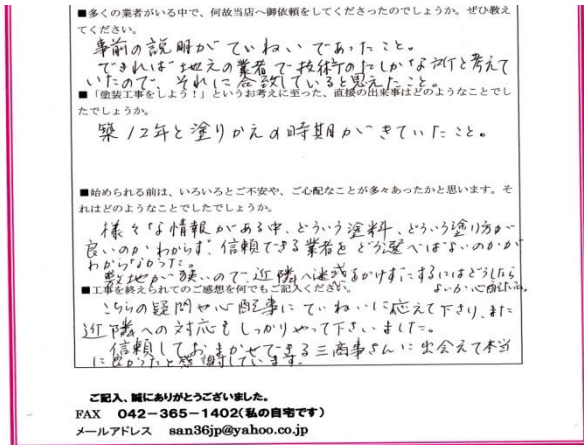 ■多くの業者がいる中で、何故当店へ御依頼をしてくださったのでしょうか。ぜひ教え
てください。
事前の説明がていねいであったこと。
できれば地元の業者で技術のたしかな所と考えて
いたので、それに合致していると思えたこと。
■「塗装工事をしよう！」というお考えに至った、直接の出来事はどのようなことでし
たでしょうか。
築12年と塗りかえの時期がきていたこと。
■始められる前は、いろいろとご不安や、ご心配なことが多々あったかと思います。そ
れはどのようなことでしたでしょうか。
様々な情報がある中、どういう塗料、どういう塗り方が
良いのかわからず、信頼できる業者をどう選べばよいのかが
わからなかった。
敷地が狭いので近隣へ迷惑をかけずにするにはどうしたら
よいか心配だった。
■工事を終えられてのご感想を何でもご記入ください。
こちらの疑問や心配事にていねいに応えて下さり、また
近隣への対応もしっかりやって下さいました。
信頼しておまかせできる三商事さんに出会えて本当
に良かったと感謝しています。
ご記入、誠にありがとうございました。
FAX 042－365－1402(私の自宅です)
メールアドレス san36jp@yahoo.co.jp